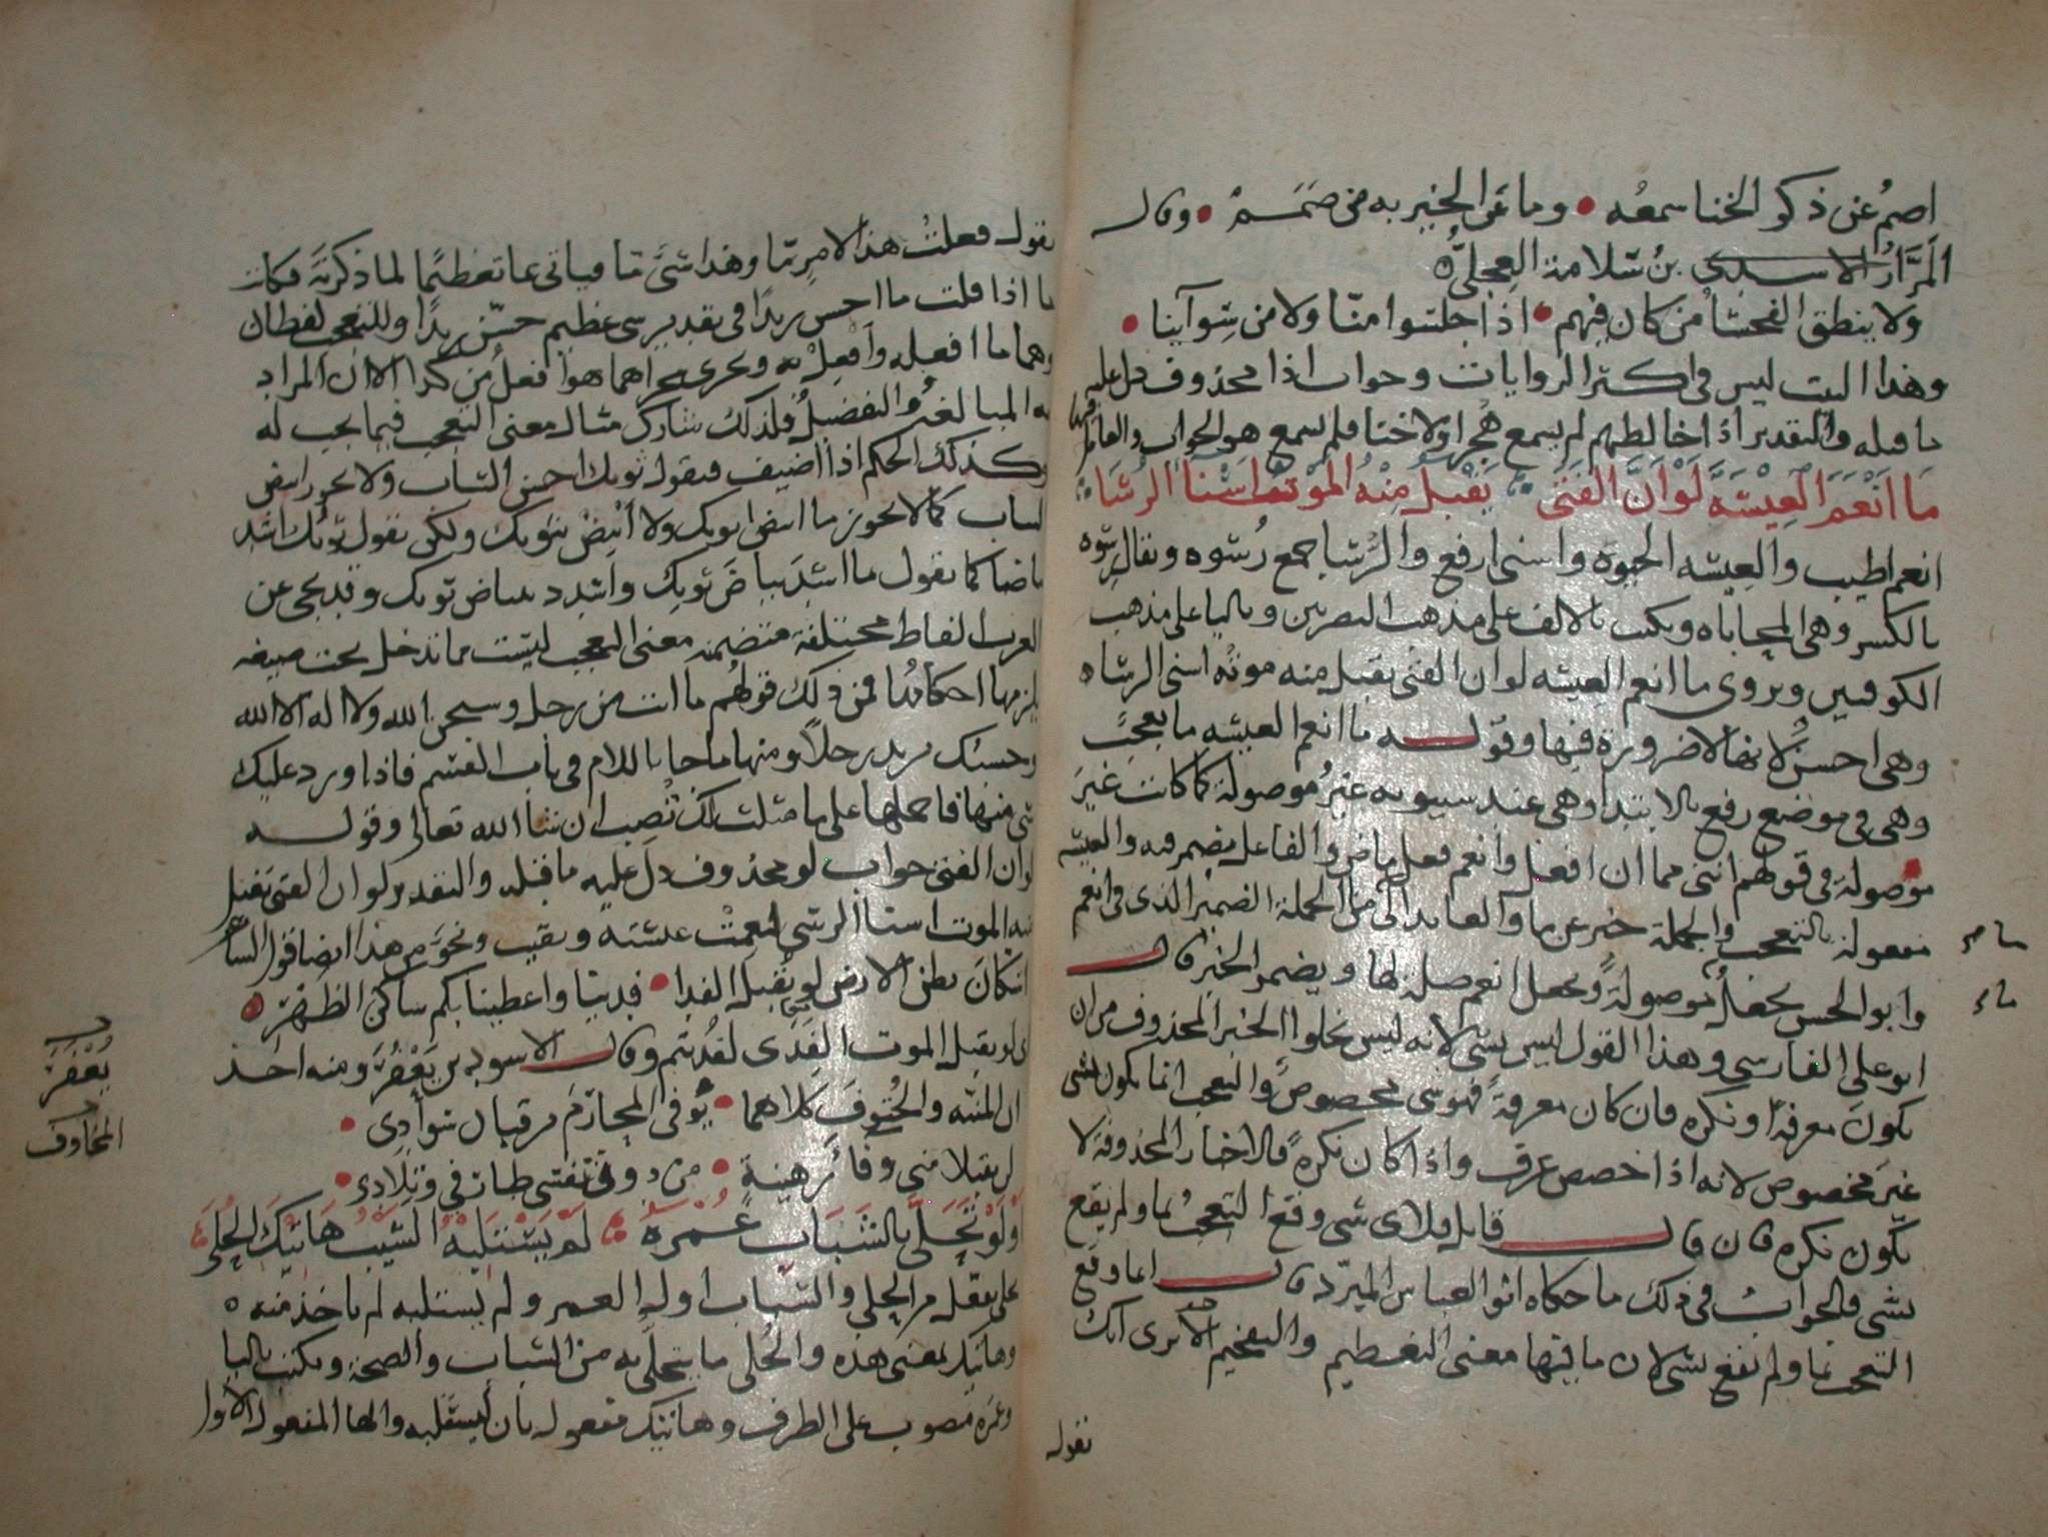 اصم عن ذكر الخنا سمعه • وما عن الخير به من صمم • وقال
المرار الاسدى بن سلامة العجلى ه
ولا ينطق الفحشا من كان فيهم • اذا جلسوا منا ولا من سوآينا •
وهذا البيت ليس فى اكثر الروايات وجواب اذا محذوف دل عليه
ما قبله والتقدير اذا خالطهم لم يسمع هجرا ولا خنا فلم يسمع هو الجواب والعامل فيها
مَا اَنْعَمَ العِيْشَةَ لَوْ اَنَّ الفَتَى يَقْبَلُ مِنْهُ المَوْتُ اَسْنَا الرُّشَا
انعم اطيب والعيشه الحيوة واسنى ارفع والرُّشا جمع رُشوه ويقال رِشوه
بالكسر وهى المحاباه ويكتب بالالف على مذهب البصريين وباليا على مذهب
الكوفيين ويروى ما انعم العيشه لو ان الفتى يقبل منه موته اسنى الرشاه
وهى احسن لانها لا ضرورة فيها وقوله ما انعم العيشه ما تعجب
وهى فى موضع رفع بالابتدا وهى عند سيبويه غير موصولة كما كانت غير
موصولة فى قولهم اننى مما ان افعل وانعم فعل ماض والفاعل مضمر فيه والعيشه
مفعولة بالتعجب والجملة خبر عن ما والعايد الى ما من الجملة الضمير الذى فى انعم
وابو الحسن يجعل ما موصولة ويجعل انعم صلة لها ويضمر الخبر قال
ابو على الفارسى وهذا القول ليس بشى لانه ليس يخلوا الخبر المحذوف من ان
يكون معرفة او نكره فان كان معرفة فهو شى مخصوص والتعجب انما يكون لشى
غير مخصوص لانه اذا خصص عرف واذا كان نكرة فالاخبار المحذوفة لا
تكون نكره فان قال قايل فلاى شى وقع التعجب بما ولم يقع
بشى فالجواب فى ذلك ما حكاه ابو العباس المبرد قال انما وقع
التعجب بما ولم يقع بشى لان ما فيها معنى التعظيم والتفخيم الا ترى انك
تقول
تقول فعلت هذا لامر ما وهذا شى ما فياتى بما تعظيما لما ذكرته فكان
ما اذا قلت ما احسن زيدا فى تقدير شى عظيم حسن زيدا وللتعجب لفظان
وهما ما افعله وافعل به ويجرى مجراهما هو افعل من كذا الا ان المراد
به المبالغة والتفضيل فلذلك شارك مثال معنى التعجب فيما يجب له
وكذلك الحكم اذا اضيف فيقول ثوبك احسن الثياب ولا يجوز ابيض
الثياب كما لا يجوز ما ابيض ثوبك ولا ابيض بثوبك ولكن تقول ثوبك اشد
بياضا كما تقول ما اشد بياض ثوبك واشدد ببياض ثوبك وقد يجى عن
العرب الفاظ مختلفة متضمنه معنى التعجب ليست مما تدخل تحت صيغه
يلزمها احكامها فمن ذلك قولهم ما انت من رجل وسبحن الله ولا اله الا الله
وحسبك بزيد رجلا ومنها ما جا باللام فى باب القسم فاذا ورد عليك
شى منها فاحملها على ما مثلت لك تصب ان شا الله تعالى وقوله
لو ان الفتى جواب لو محذوف دل عليه ما قبله والتقدير لو ان الفتى تقبل
منه الموت اسنا الرشى لنعمت عيشته وبقيت ونحو من هذا ايضا قول الشاعر
ان كان بطن الارض لو يقبل الفدا • فدينا واعطينا بكم ساكن الظهر •
اى لو يقبل الموت الفدى لفديتم وقال الاسود بن يَعْفُر ومنه اخذ
ان المنية والحتوف كلاهما • يوفى المخارم يرقبان سوادى •
لن يقبلا منى وفا رهينة • من دون نفسى طارفى وتلادى •
اَوْ لَوْ تَحَلَّى بالشَّبَابِ عُمْرَهُ لَمْ يَسْتَلِبْهُ الشَّيْبُ هَاتِيْكَ الحُلَى
تحلى تفعل من الحلى والشباب اول العمر ولم يستلبه لم ياخذ منه ه
وهاتيك بمعنى هذه والحلى ما يتحلى به من الشباب والصحة ويكتب باليا
وعمره منصوب على الظرف وهاتيك مفعوله بان يستلبه والها المفعول الاول
يُعْفُرَ
المخارف